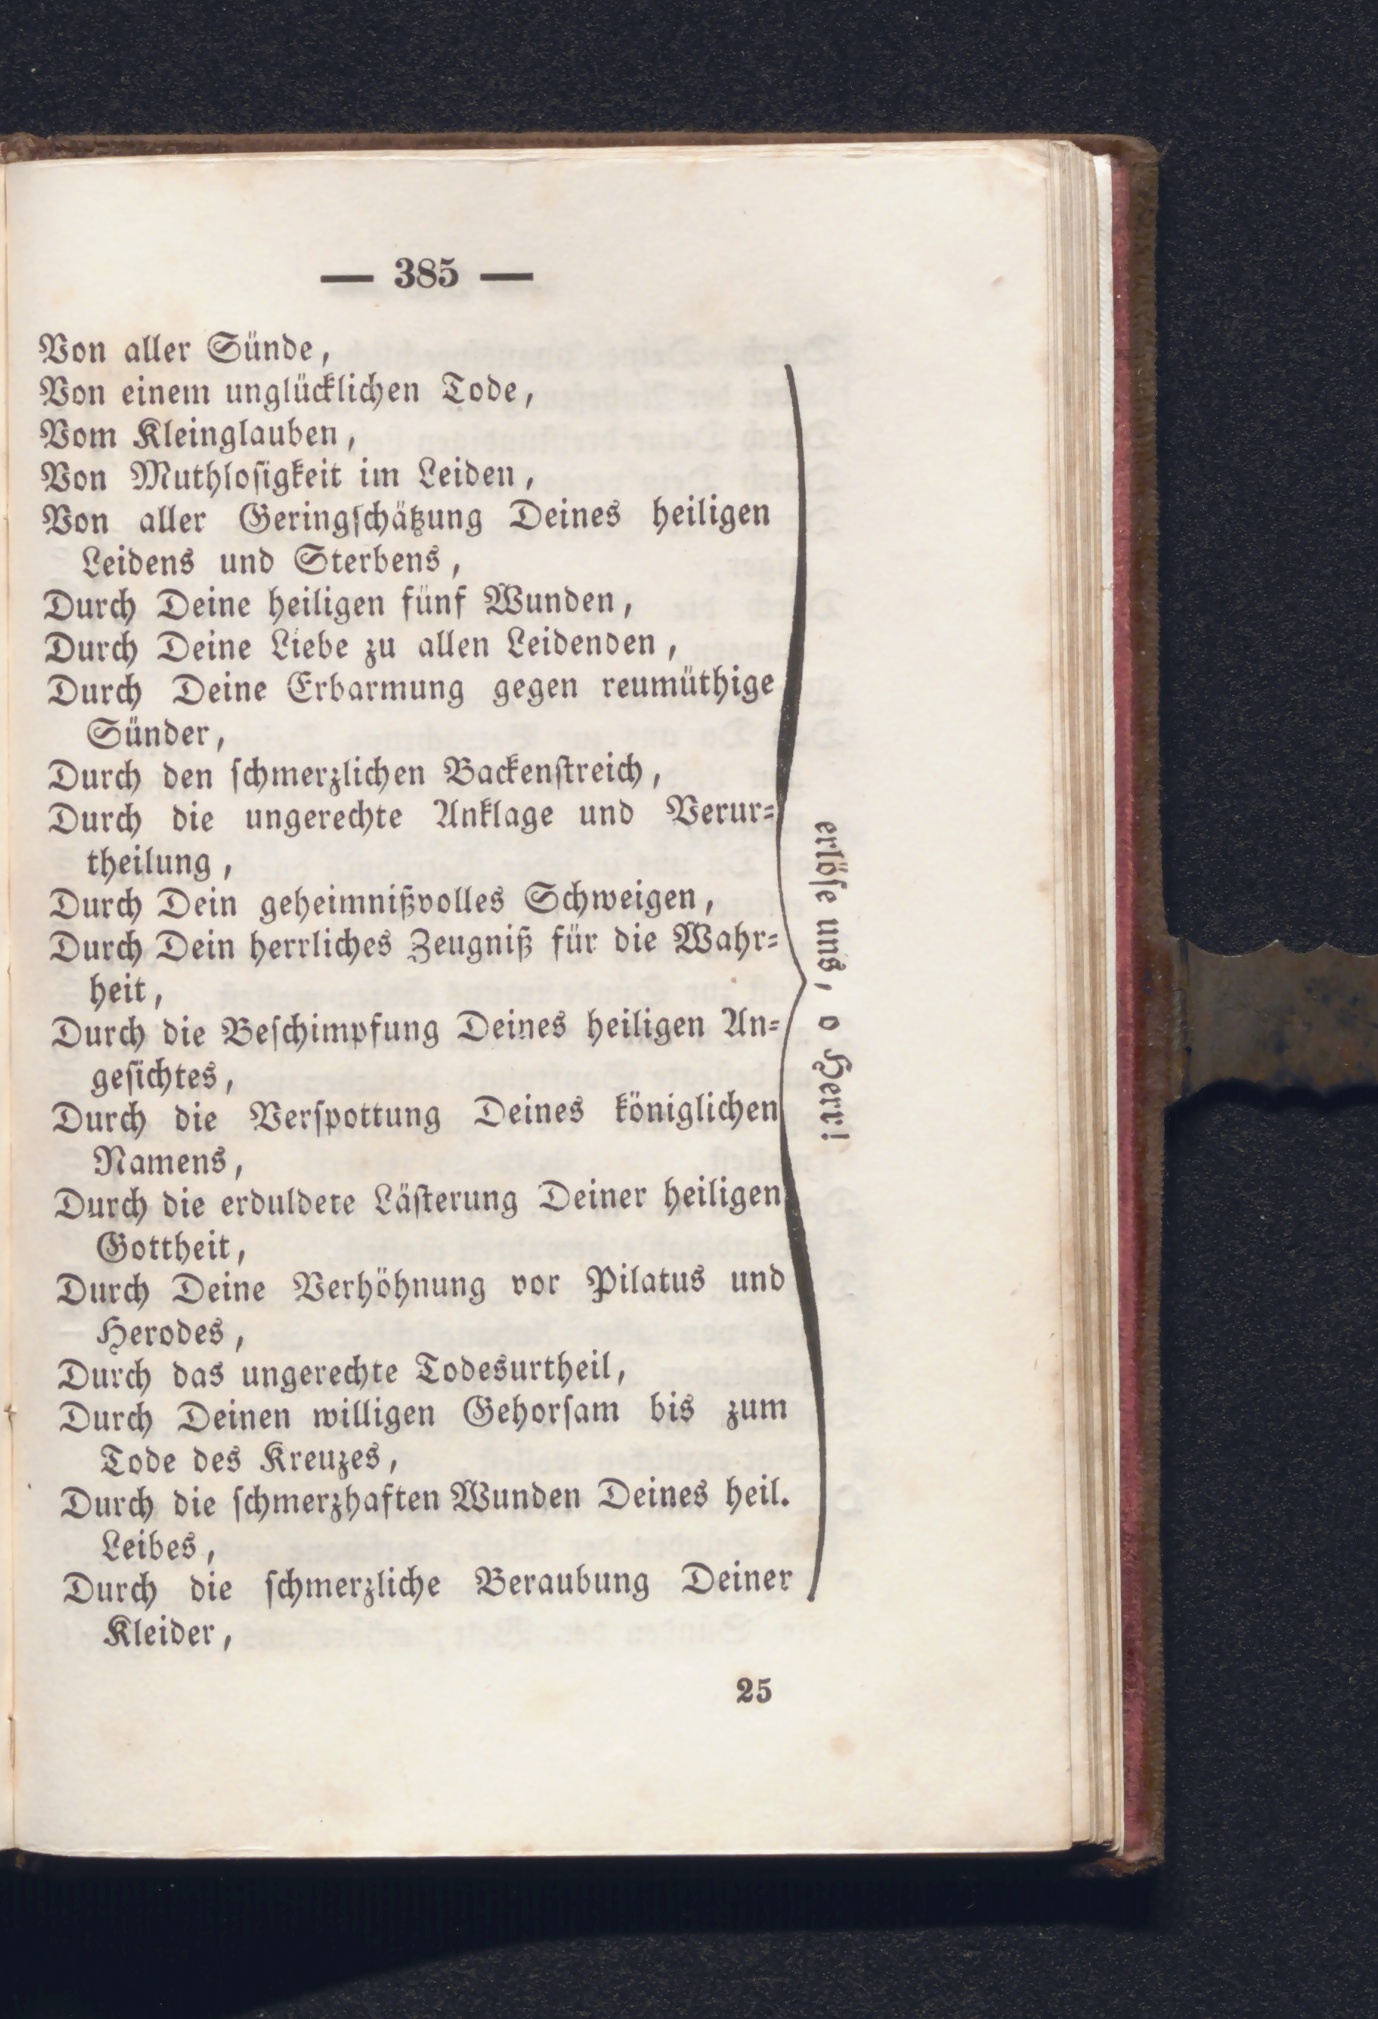 — 385 —
Von aller Sünde,
Von einem unglücklichen Tode,
Vom Kleinglauben,
Von Muthlosigkeit im Leiden,
Von aller Geringschätzung Deines heiligen
Leidens und Sterbens,
Durch Deine heiligen fünf Wunden,
Durch Deine Liebe zu allen Leidenden,
Durch Deine Erbarmung gegen reumüthige
Sünder,
Durch den schmerzlichen Backenstreich,
Durch die ungerechte Anklage und Verur-
theilung,
Durch Dein geheimnißvolles Schweigen,
Durch Dein herrliches Zeugniß für die Wahr-
heit,
Durch die Beschimpfung Deines heiligen An-
gesichtes,
Durch die Verspottung Deines königlichen
Namens,
Durch die erduldete Lästerung Deiner heiligen
Gottheit,
Durch Deine Verhöhnung vor Pilatus und
Herodes,
Durch das ungerechte Todesurtheil,
Durch Deinen willigen Gehorsam bis zum
Tode des Kreuzes,
Durch die schmerzhaften Wunden Deines heil.
Leibes,
Durch die schmerzliche Beraubung Deiner
Kleider,
erlöse uns, o Herr!
25